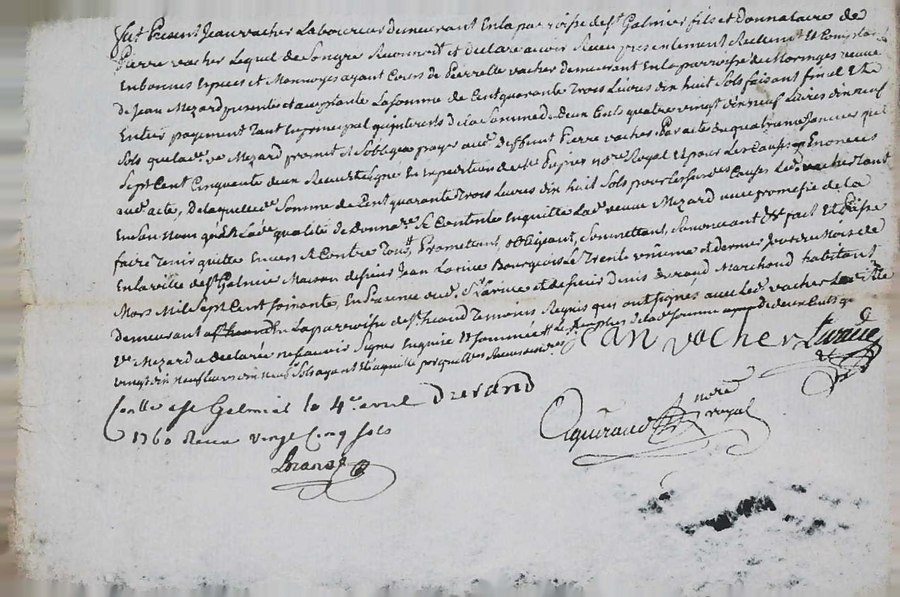 fut Present Jean vacher Laboureur demeurant En la parroisse de st Galmier fils et donnataire de
Pierre vacher Lequel de Son gré Reconnoit et declare avoir Receu presentement Reelemt Et Comptant
En bonnes Especes et Monnoyes ayant Cours de Pierrette vacher demeurant En la parroisse de Moringes veuve
de Jean Mezard presente et acceptante La somme de Cent quarante Trois Livres dix huit Sols faisant fin et
Entier payement Tant En principal qu'interets de la Somme de deux Cents quatre vingt dix neuf Livres dix neuf
Sols que lad. ve Mezard promit et S'obligea payer aud. deffunt Pierre vacher Par acte du quatre mars
Sept Cent Cinquante deux Receu Et signé En expedition de Me notre Royal Et pour Les Causes y Enoncées
aud. acte, De laquelle de. Somme de Cent quarante Trois Livres dix huit Sols pour les susd. Causes Led. vacher tant
En Son Nom qu'En lad. qualité de Donnre. Se Contente En quitte Lad. veuve Mezard avec promesse de la
faire Tenir quitte Envers Et Contre Tous, Promettant, obligeant, Soumettant, Renonceant &c fait Et Passé
En la ville de st Galmier Maison de sieur Jean Larive Bourgeois Le Trente unième et dernier Jour du Mois de
Mars Mil Sept Cent Soixante, En Presence dud. Sr. Larive et de sieur denis durand Marchand habitant
demeurant En la parroisse de st heand Temoins Requis qui ont signés avec Led. vacher
ve Mezard a declarée ne sçavoir Signer Enquise Et Sommée
vingt dix neuf Livres dix neuf Sols
Jean vacher Larive
Conlle a st Galmier le 4e avril Durand
1760 Receu vingt Cinq sols
notre
royal